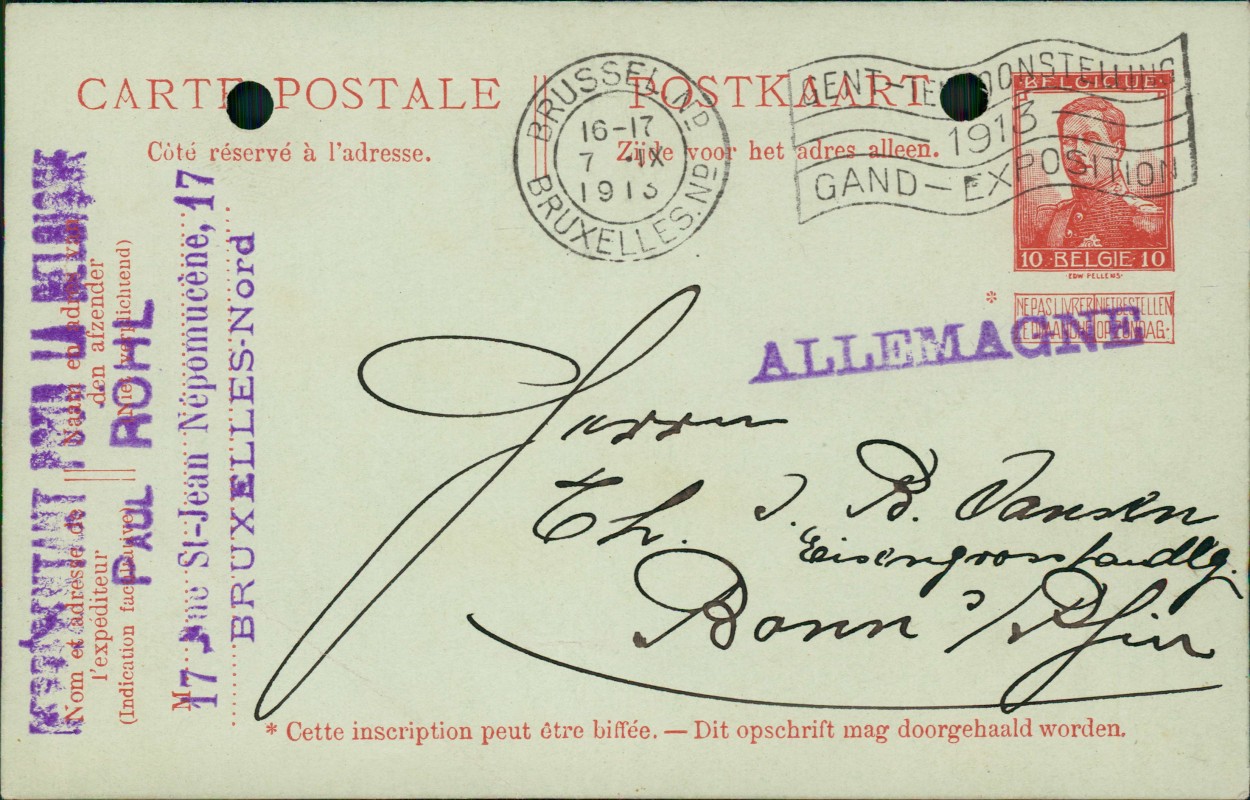 CARTE POSTALE || POSTKAART
Côté réservé à l'adresse.
Zijde voor het adres alleen.
BRUSSEL Nd
16-17
7 IX
1913
BRUXELLES.Nd
GENT-TENTOONSTELLING
1913
GAND-EXPOSITION
BELGIQUE
10 BELGIE 10
EDW PELLENS
*
NE PAS LIVRER NIET BESTELLEN
LE DIMANCHE OP ZONDAG
ALLEMAGNE
POUR LA BELGIQUE
Nom et adresse de || Naam en adres van
l'expéditeur
den afzender
(Indication facultative)
(Niet verplichtend)
PAUL ROHL
M
17 Rue St-Jean Népomucène, 17
BRUXELLES-Nord
Herrn
Th. J. B. Vansen
Eisengrosshandlg.
Bonn a/Rhin
* Cette inscription peut être biffée. — Dit opschrift mag doorgehaald worden.